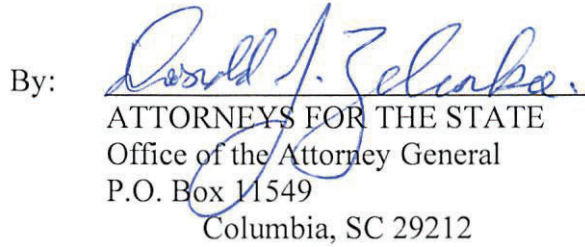 By: Donald J. Zelenka.
ATTORNEYS FOR THE STATE
Office of the Attorney General
P.O. Box 11549
Columbia, SC 29212